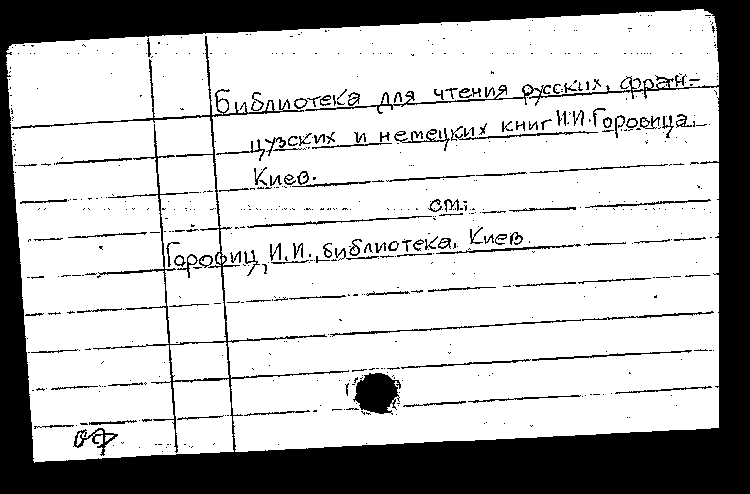 Библиотека для чтения русских, фран-
цузских и немецких книг И.И.Горовица.
Киев.
см.:
Горовиц, И.И., библиотека. Киев
оф